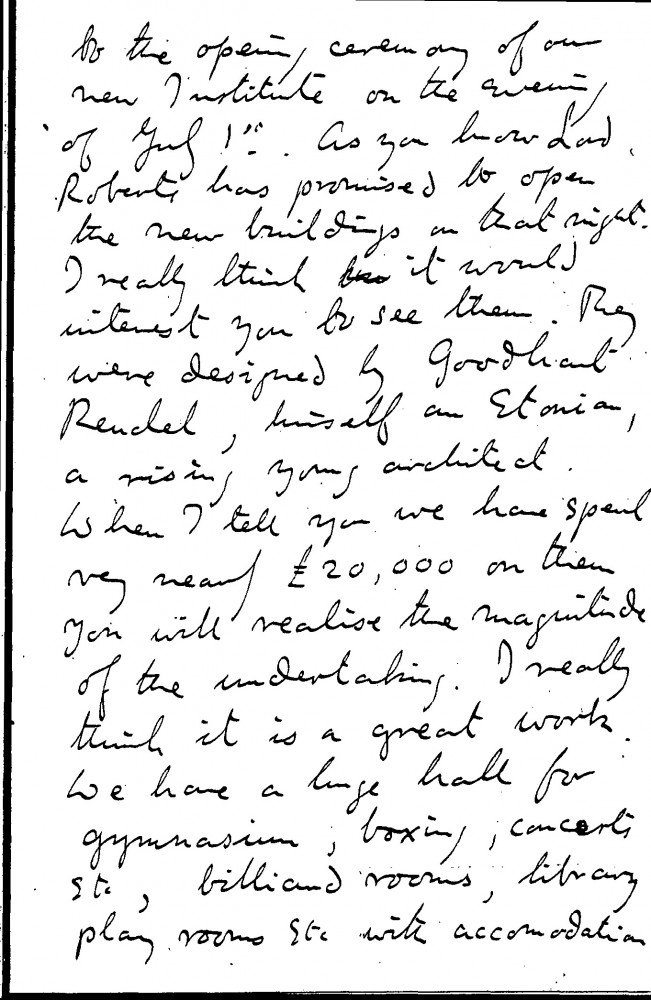 to the opening ceremony of our
new Institute on the evening
of July 1st. As you know Lord
Roberts has promised to open
the new buildings on that night.
I really think it would
interest you to see them. They
were designed by Goodhart
Rendel, himself an Etonian,
a rising young architect.
When I tell you we have spent
very nearly £20,000 on them
you will realise the magnitude
of the undertaking. I really
think it is a great work.
We have a huge hall for
gymnasium, boxing, concerts
etc, billiard rooms, library
play rooms etc with accomodation